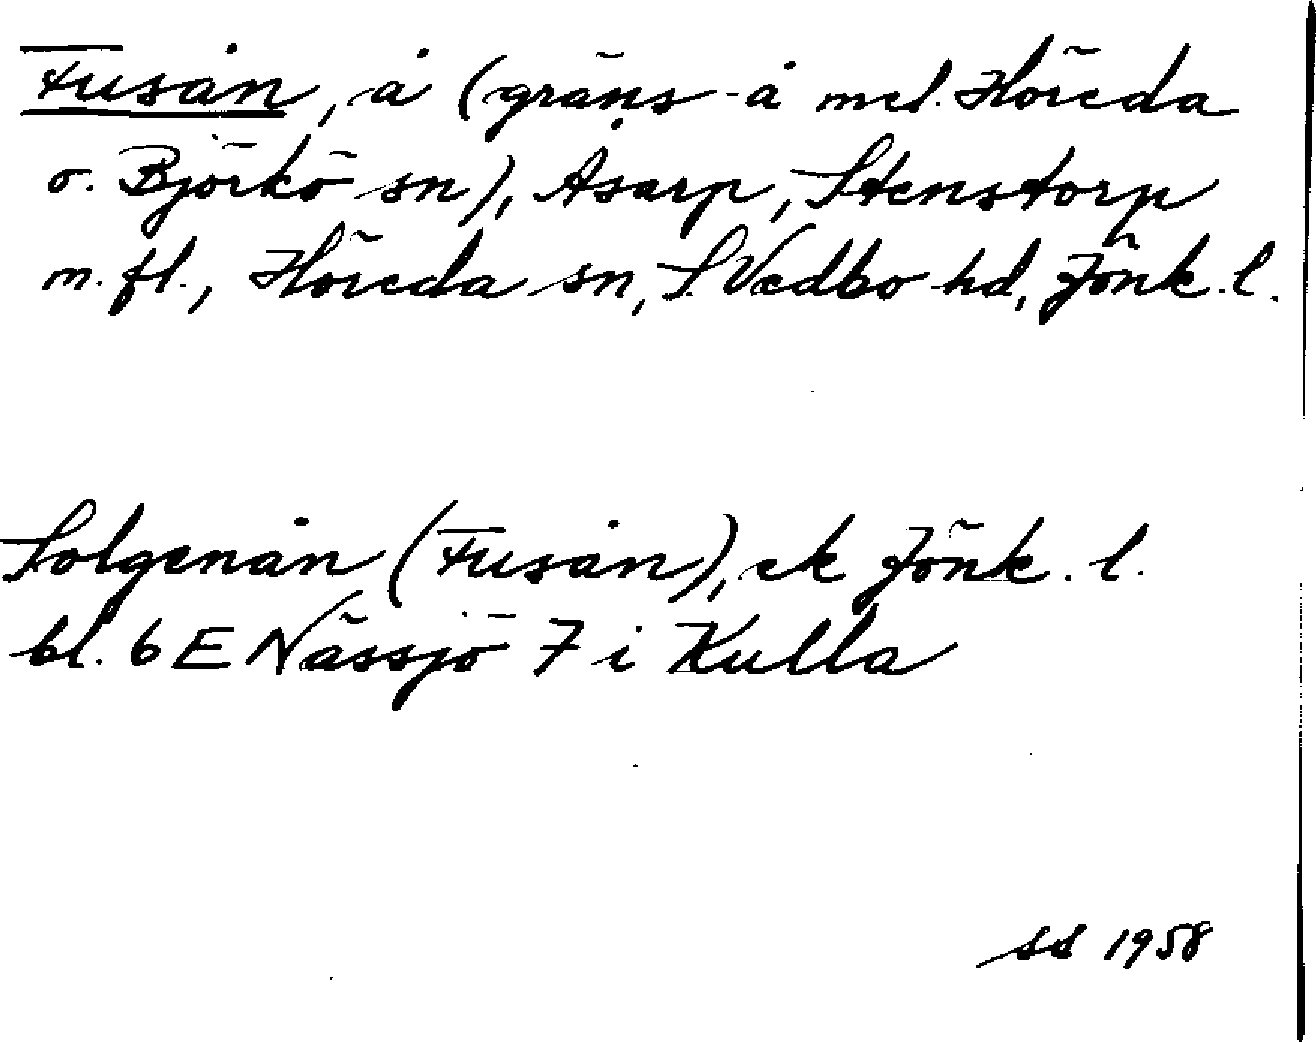 Fusån, å (gräns-å mel. Höreda
o. Björkö sn), Åsarp, Stenstorp
m. fl., Höreda sn, S. Vedbo hd, Jönk. l.
Solgenån (Fusån), ek Jönk. l.
bl. 6 E Nässjö 7 i Kulla
SS 1958